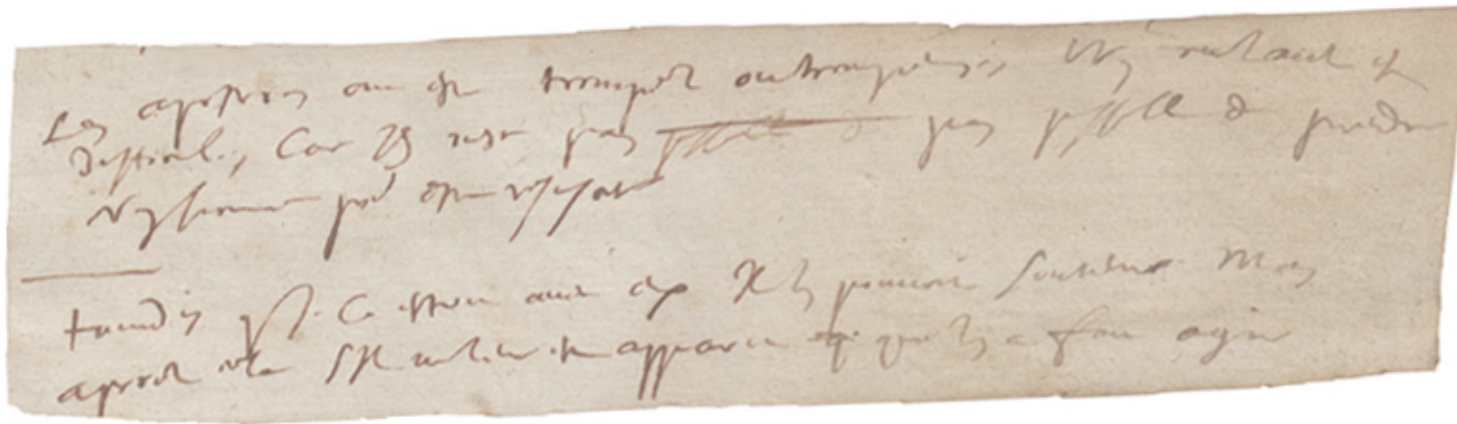 Les apostres ont esté trompez ou trompeurs, l'un et l'autre est
difficile, Car Il n'est pas possible de pas possible de prendre
un homme pour estre resuscité
tandis que J.C. estoit avec eux Il les pouvoit soutenir Mais
apres cela s'Il ne leur est apparu qui les a fait agir